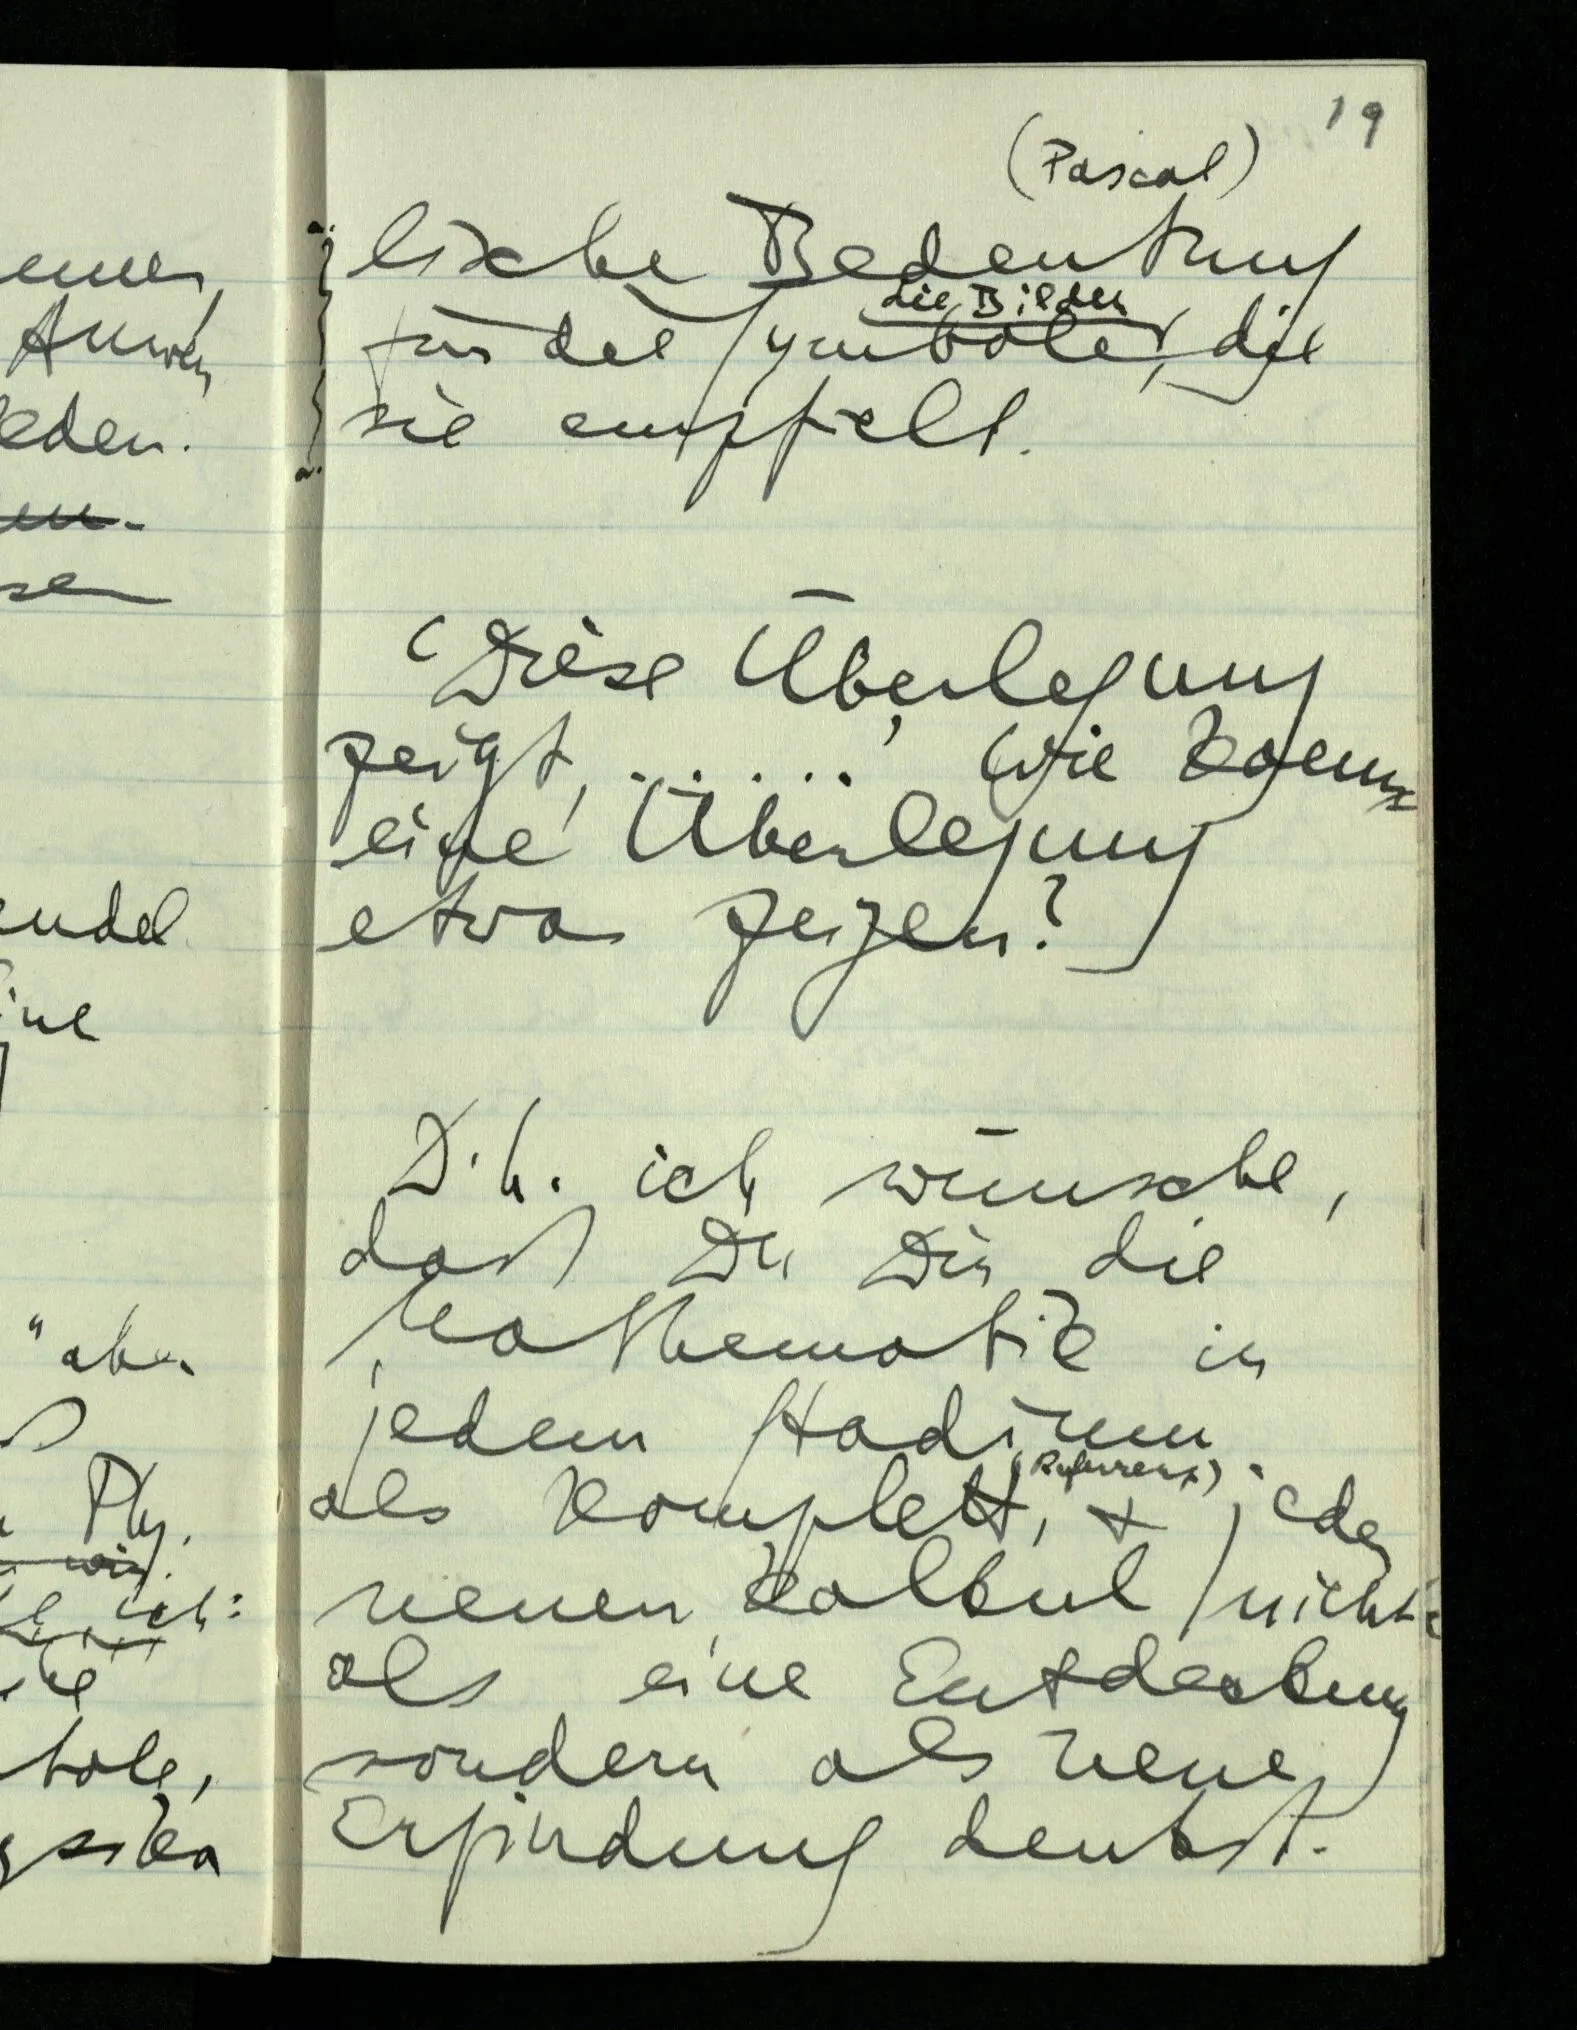 enen,
Anwen
eden.
sen
endel
ine
" aber
Phy.
wir.
ich:
bole,
19
(Pascal)
liche Bedeutung
die Bilder
für die Symbole, die
sie empfielt.
(Diese Überlegung
zeigt, . . . . . ' Wie kann
eine Überlegung
etwas zeigen?)
D.h. ich wünsche,
daß Du Dir die
Mathematik in
jedem Stadium
als komplett, & jeden
neuen Kalkul nicht
als eine Entdeckung
sondern als neue
Erfindung denkst.